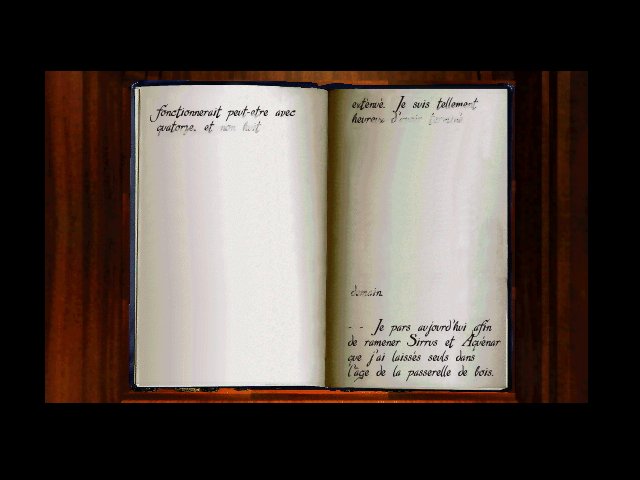 fonctionnerait peut-etre avec
quatorze. et non huit
exténué. Je suis tellement
heureux d'avoir terminé
demain.
- - Je pars aujourd'hui afin
de ramener Sirrus et Aquénar
que j'ai laissés seuls dans
l'âge de la passerelle de bois.